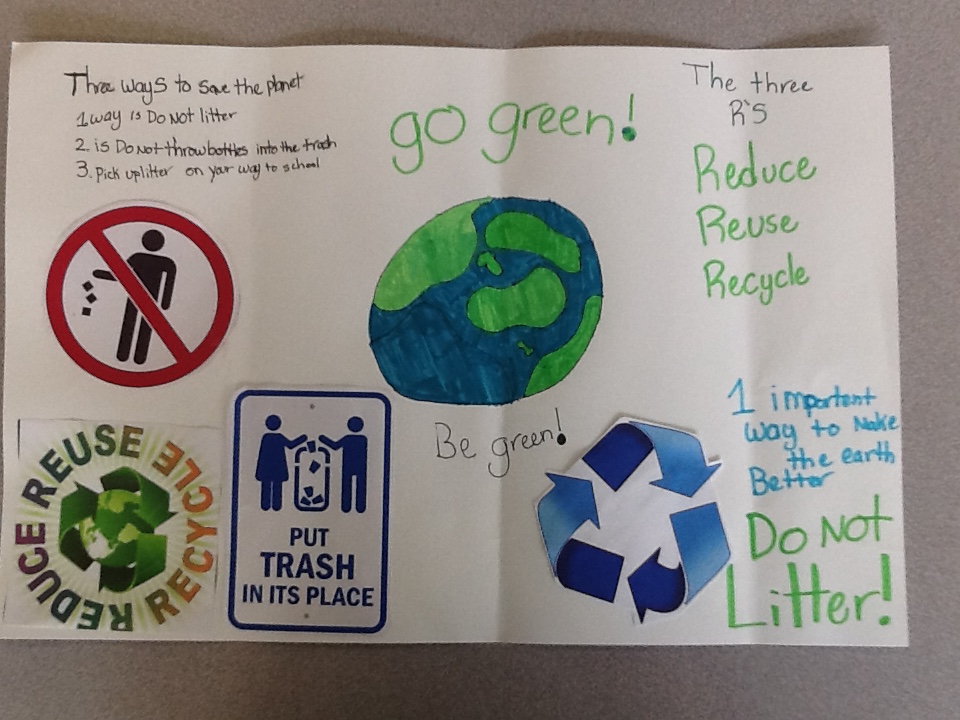 Three ways to save the planet
1 way is Do Not litter
2. is Do Not throw bottles into the trash
3. Pick up litter on your way to school
go green!
The three
R's
Reduce
Reuse
Recycle
Be green!
1 important
way to Make
the earth
Better
Do Not
Litter!
REDUCE REUSE RECYCLE
PUT
TRASH
IN ITS PLACE